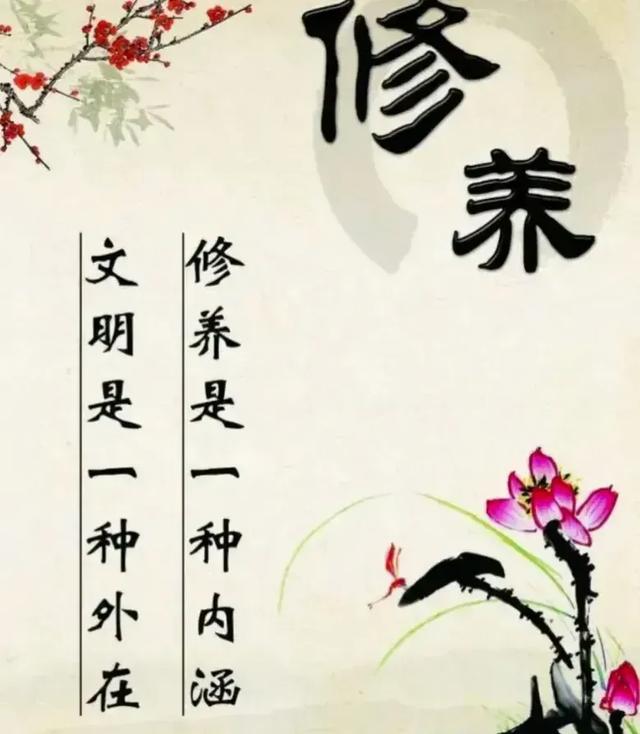 修养
修养是一种内涵
文明是一种外在